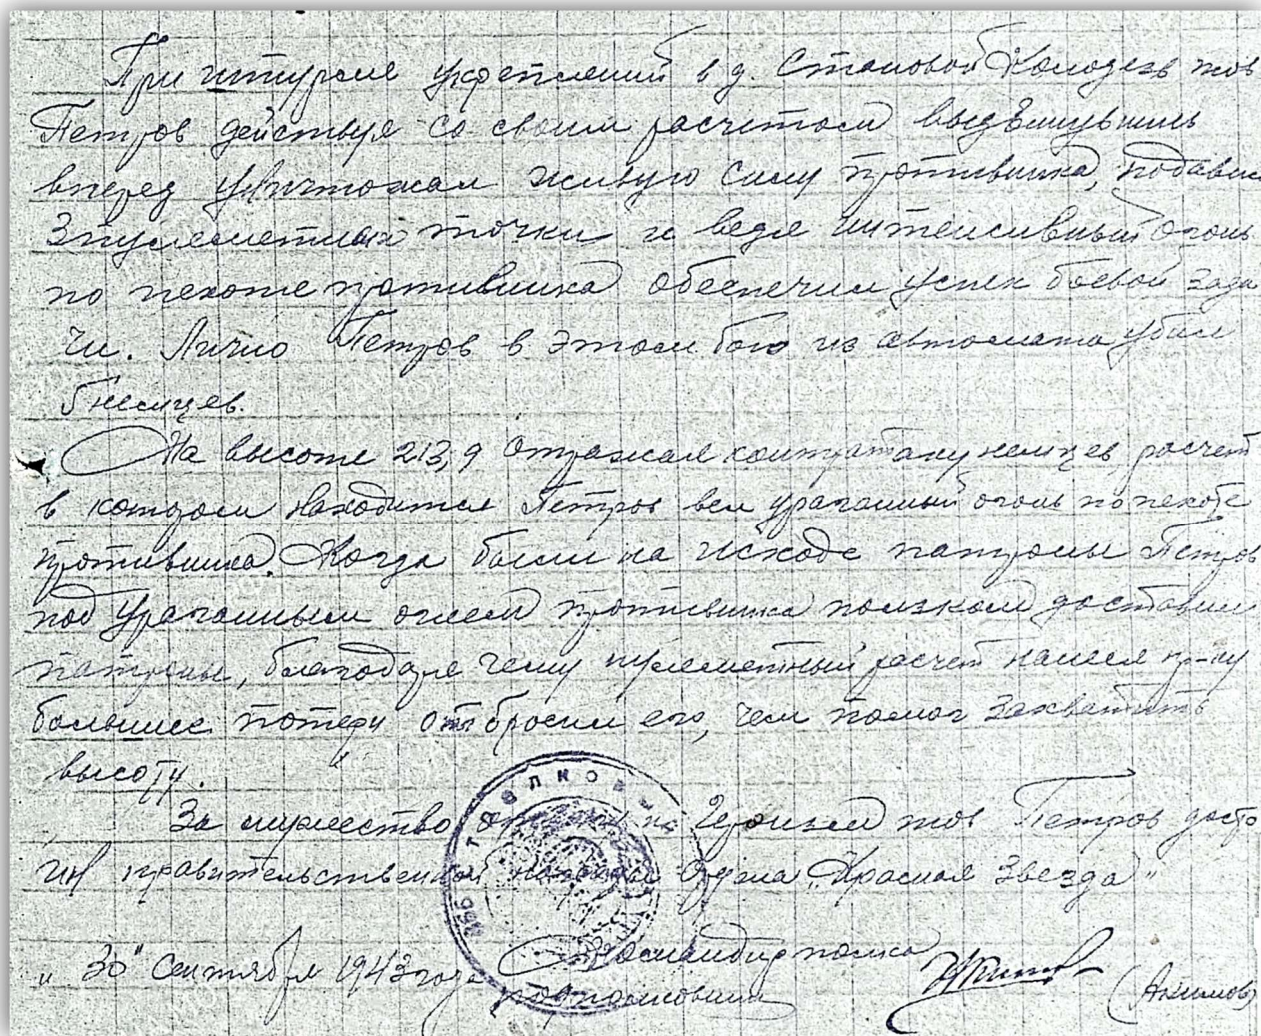 При штурме укреплений в д. Становой Колодезь тов
Петров действуя со своим расчетом выдвинувшись
вперед уничтожал живую силу противника, подавил
3 пулеметных точки и ведя интенсивный огонь
по пехоте противника обеспечил успех боевой зада
чи. Лично Петров в этом бою из автомата убил
5 немцев.
На высоте 213,9 отражая контратаку немцев, расчет
в котором находится Петров вел ураганный огонь по пехоте
противника. Когда были на исходе патроны Петров
под ураганным огнем противника ползком доставил
патроны, благодаря чему пулеметный расчет нанеся пр-ку
большие потери отбросил его, чем помог захватить
высоту.
За мужество и героизм тов Петров досто
ин правительственной награды Ордена „Красная Звезда"
„30" Сентября 1943 года Командир полка
подполковник (Акимов)